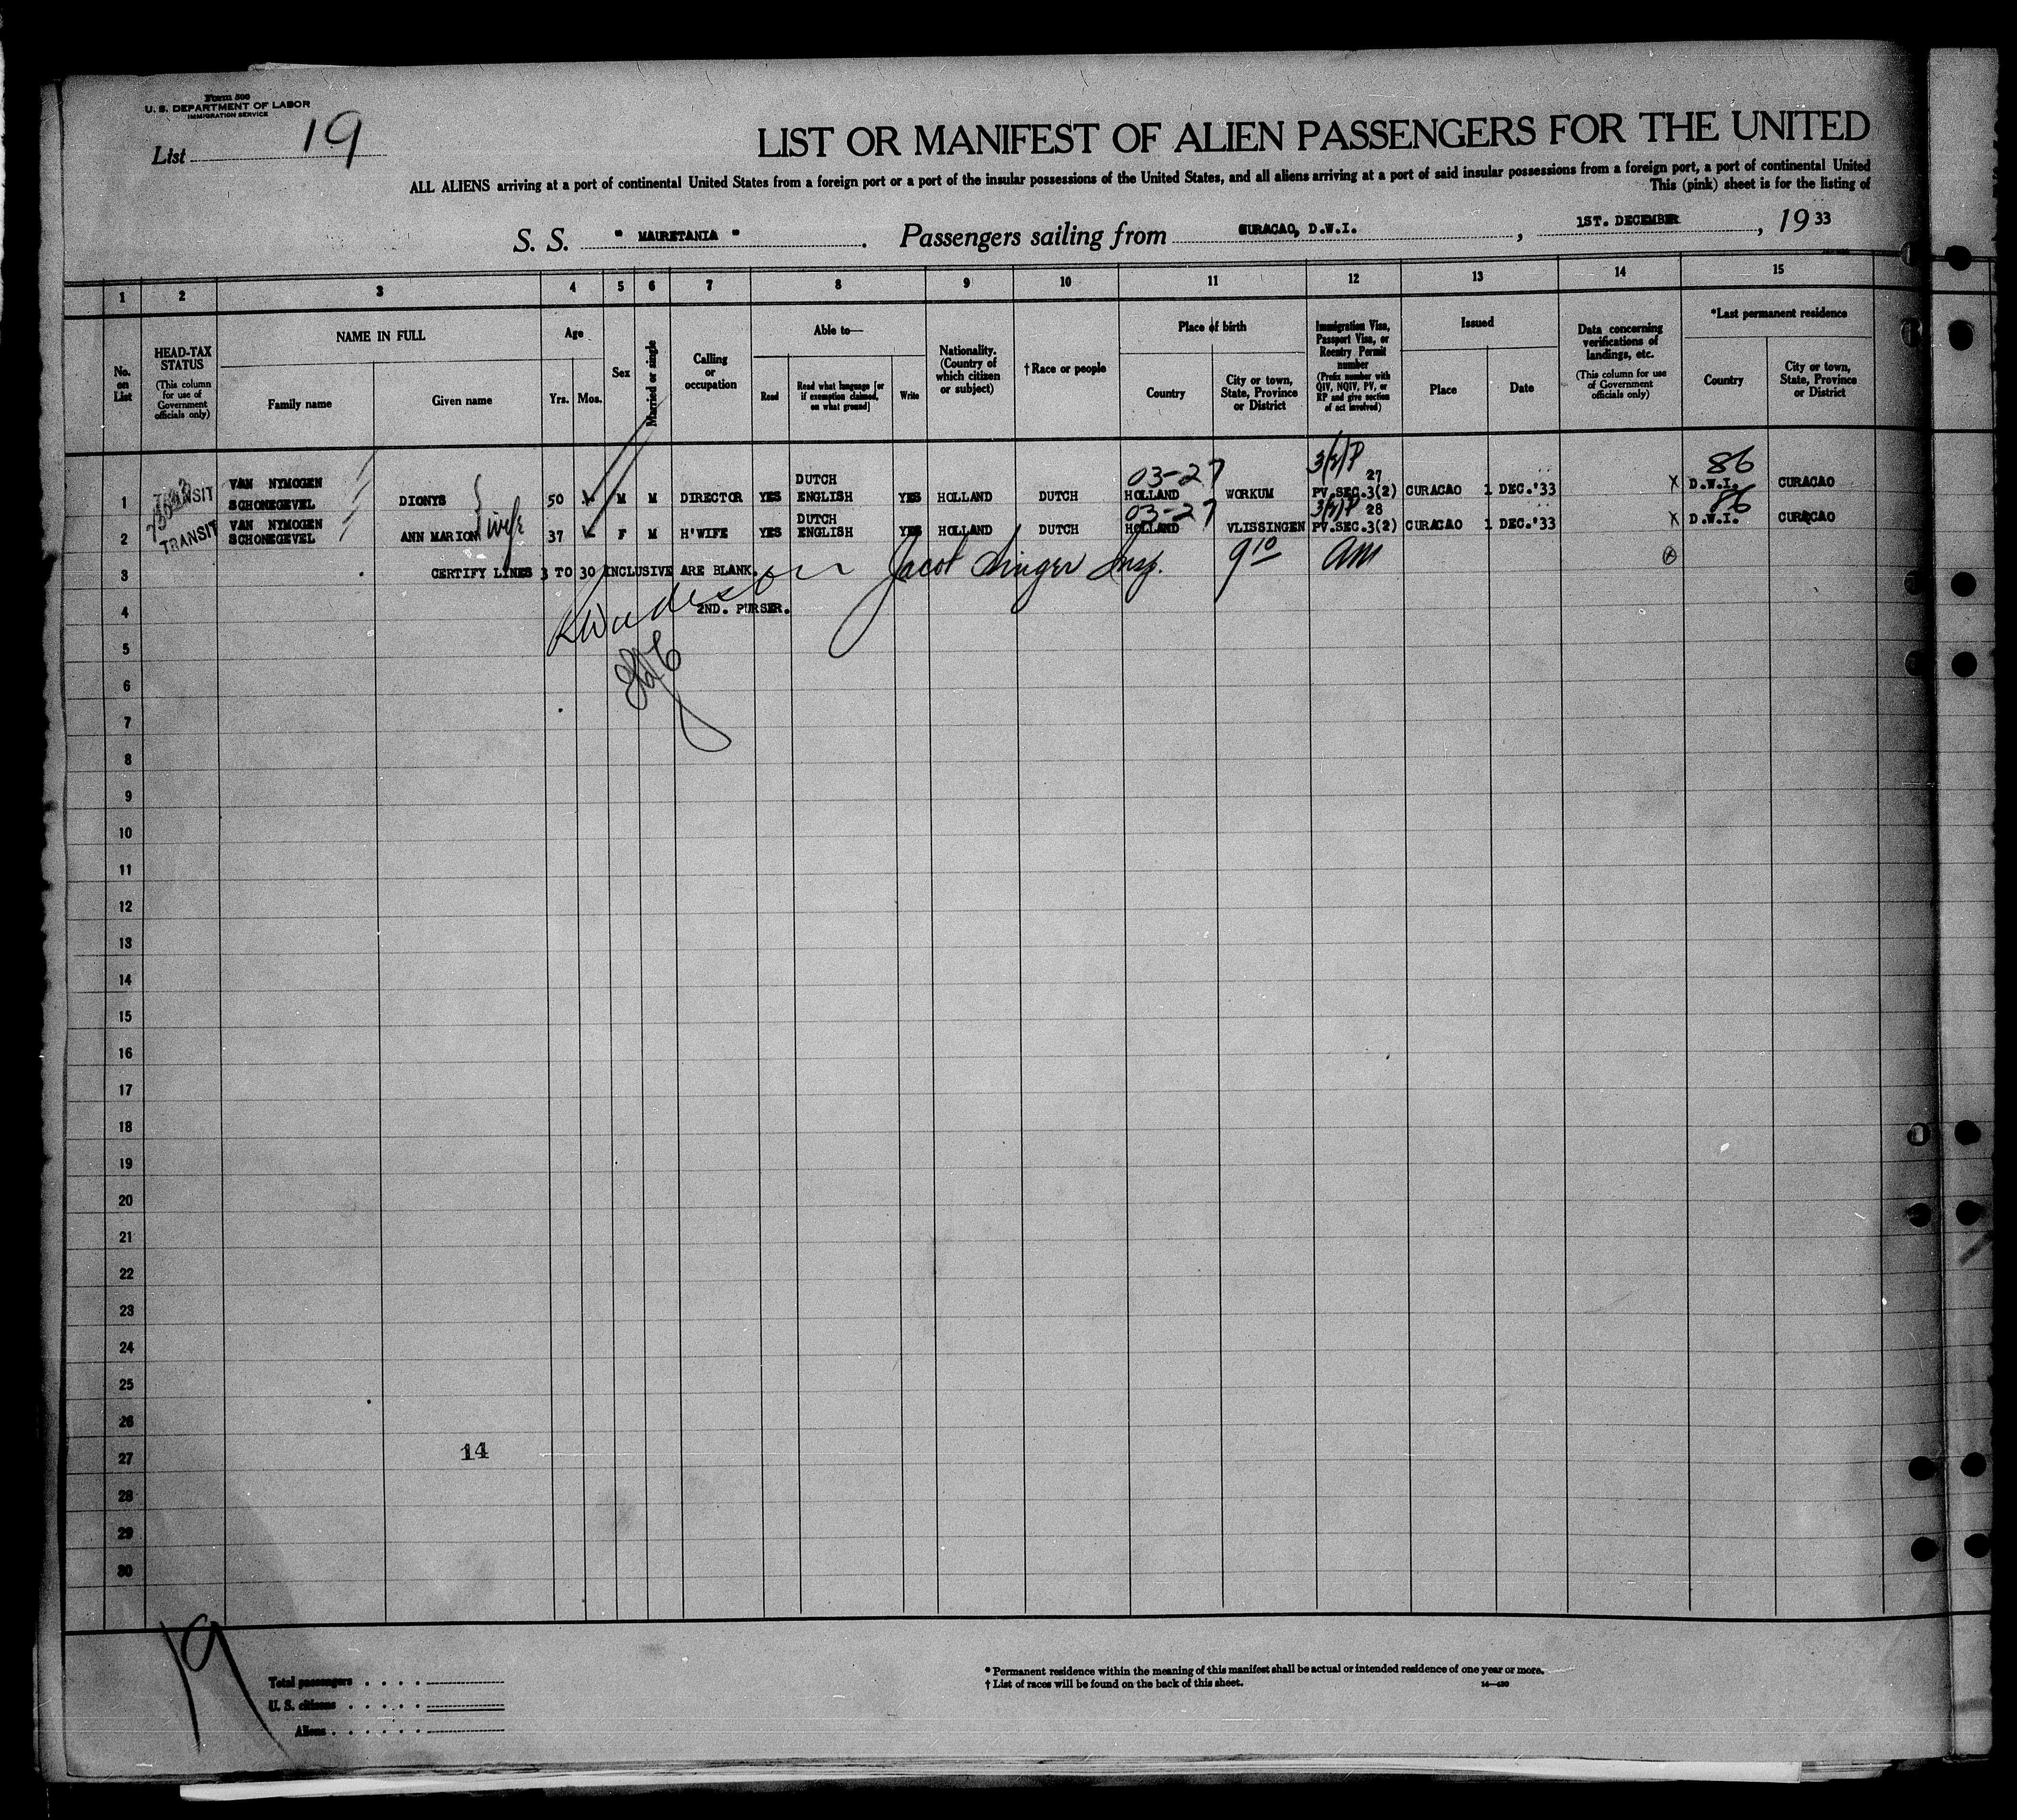 Form 500
U. S. DEPARTMENT OF LABOR
IMMIGRATION SERVICE
List 19
LIST OR MANIFEST OF ALIEN PASSENGERS FOR THE UNITED
ALL ALIENS arriving at a port of continental United States from a foreign port or a port of the insular possessions of the United States, and all aliens arriving at a port of said insular possessions from a foreign port, a port of continental United
This (pink) sheet is for the listing of
S. S. " MAURETANIA " . Passengers sailing from CURACAO, D.W.I. , 1ST. DECEMBER , 19 33
1 2 3 4 5 6 7 8 9 10 11 12 13 14 15
No. on List
HEAD-TAX STATUS
(This column for use of Government officials only)
NAME IN FULL
Family name
Given name
Age
Yrs. Mos.
Sex
Married or single
Calling or occupation
Able to—
Read
Read what language [or if exemption claimed, on what ground]
Write
Nationality. (Country of which citizen or subject)
† Race or people
Place of birth
Country
City or town, State, Province or District
Immigration Visa, Passport Visa, or Reentry Permit number
(Prefix number with QIV, NQIV, PV, or RP and give section of act involved)
Issued
Place
Date
Data concerning verifications of landings, etc.
(This column for use of Government officials only)
*Last permanent residence
Country
City or town, State, Province or District
03-27 86
VAN NYMOGEN DUTCH 27
1 TRANSIT SCHONEGEVEL DIONYS 50 M M DIRECTOR YES ENGLISH YES HOLLAND DUTCH HOLLAND WORKUM PV.SEC.3(2) CURACAO 1 DEC.'33 X D.W.I. CURACAO
03-27 86
VAN NYMOGEN DUTCH 28
2 TRANSIT SCHONEGEVEL ANN MARION wife 37 F M H'WIFE YES ENGLISH YES HOLLAND DUTCH HOLLAND VLISSINGEN PV.SEC.3(2) CURACAO 1 DEC.'33 X D.W.I. CURACAO
3 CERTIFY LINES 3 TO 30 INCLUSIVE ARE BLANK. Jacob Singer Insp. 9 10 AM
4 2ND. PURSER.
5
6
7
8
9
10
11
12
13
14
15
16
17
18
19
20
21
22
23
24
25
26
27 14
28
29
30
19
Total passengers
U. S. citizens
Aliens
* Permanent residence within the meaning of this manifest shall be actual or intended residence of one year or more.
† List of races will be found on the back of this sheet.
14—430